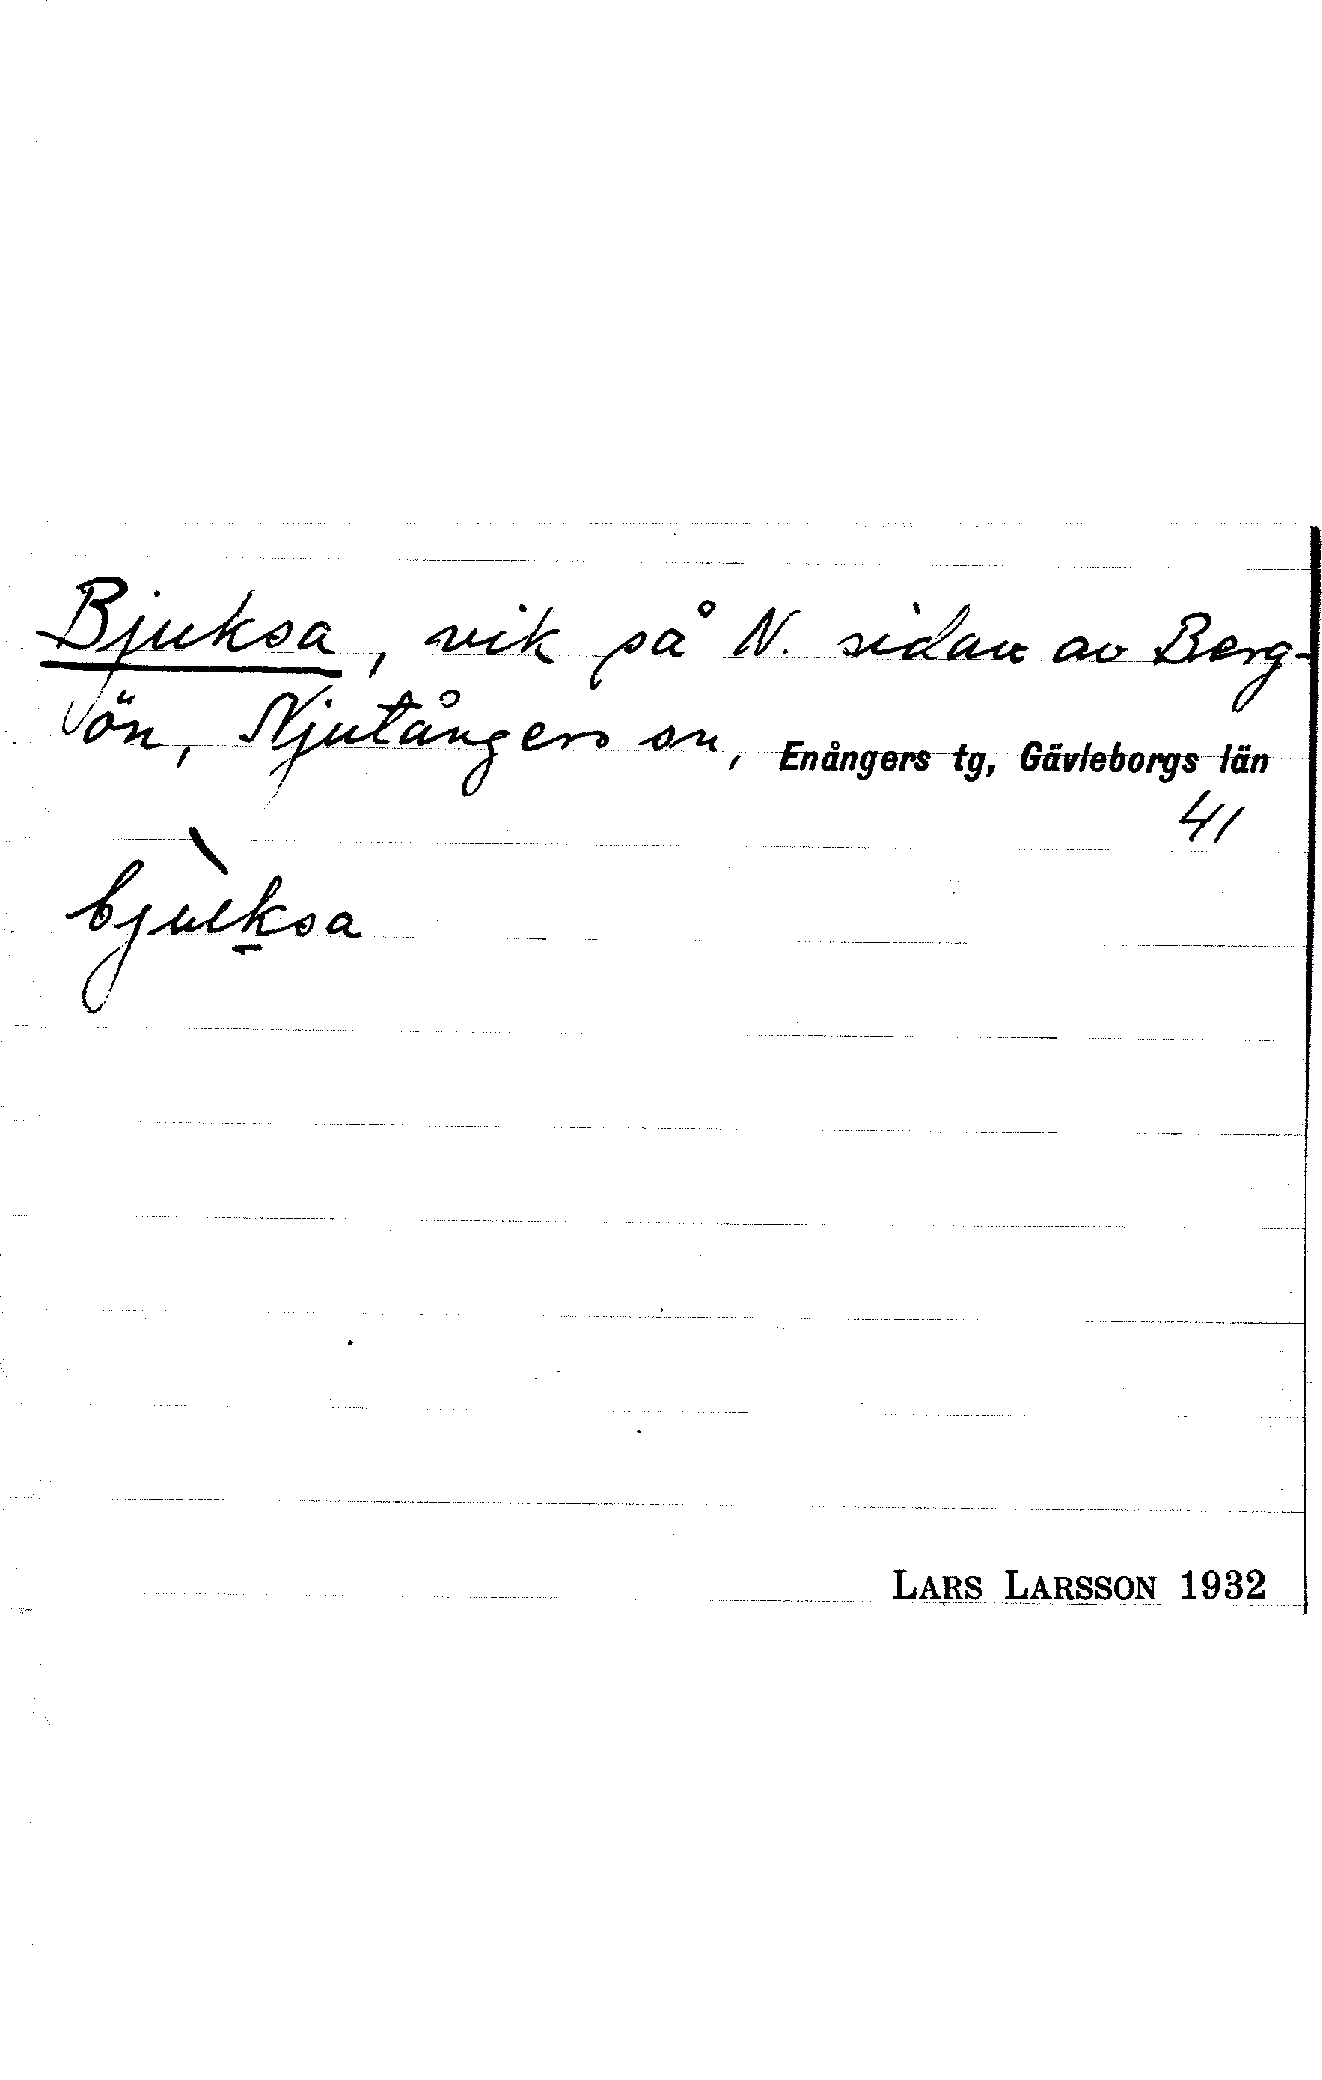 Bjuksa, vik på N. sidan av Berg-
ön, Njutångers sn, Enångers tg, Gävleborgs län
41
bjùksa
LARS LARSSON 1932